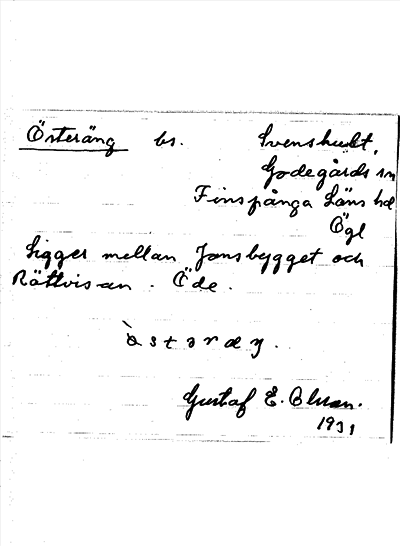 Österäng bs. Svenshult,
Godegårds sn
Finspånga Läns hd
Ögl
Ligger mellan Jonsbygget och
Rättvisan. Öde.
Gustaf E.
1931